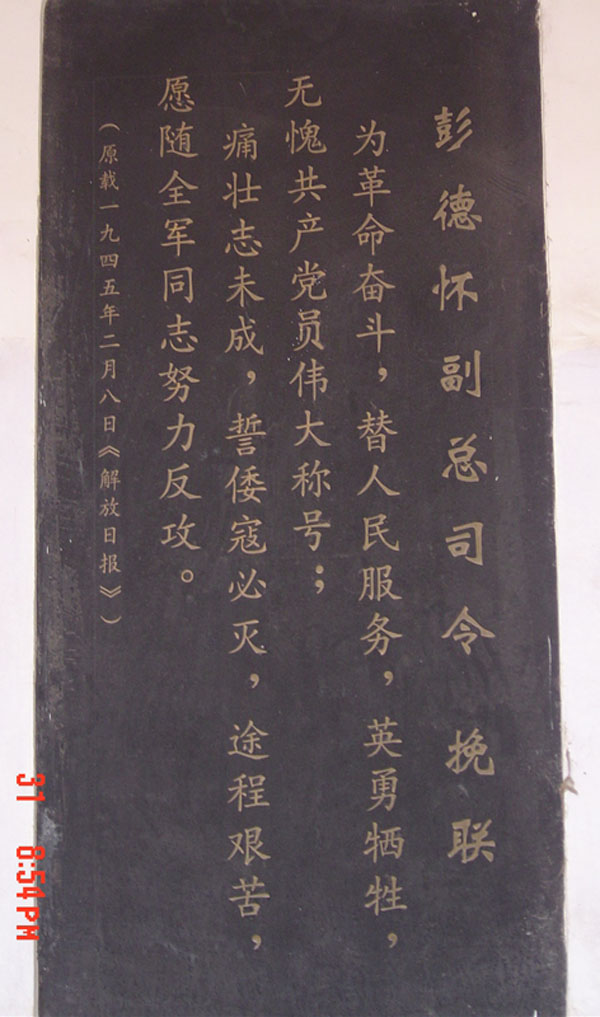 彭德怀副总司令 挽联
为革命奋斗，替人民服务，英勇牺牲，
无愧共产党员伟大称号；
痛壮志未成，誓倭寇必灭，途程艰苦，
愿随全军同志努力反攻。
（原载一九四五年二月八日《解放日报》）
31 8:54 PM